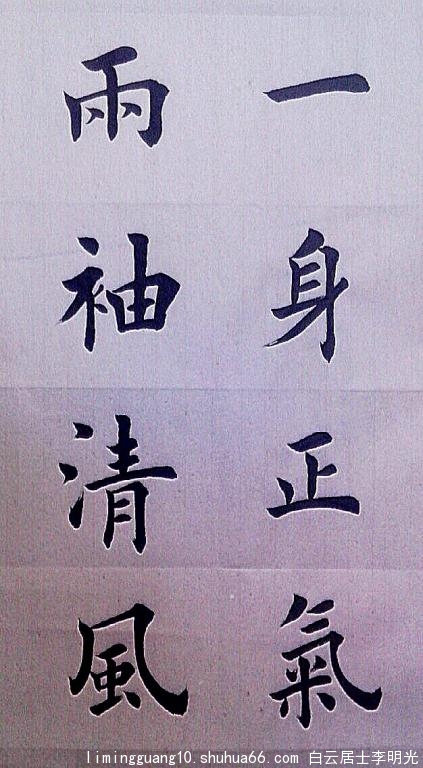 一身正氣
兩袖清風
limingguang10.shuhua66.com 白云居士李明光